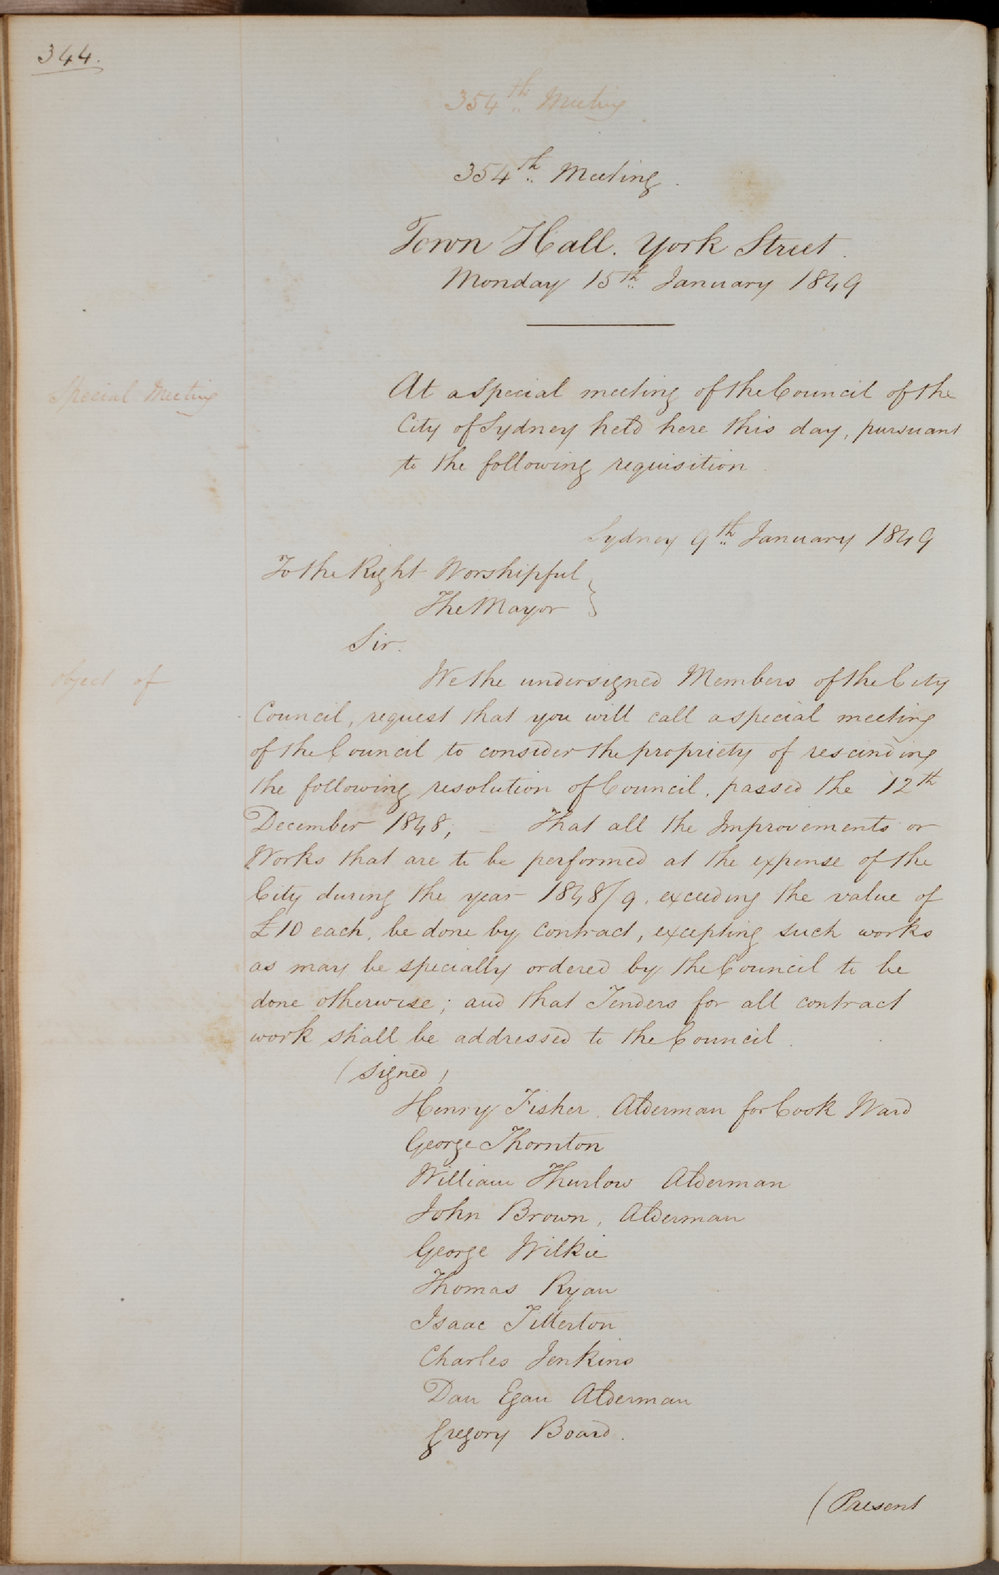 344.
354th Meeting
354th Meeting.
Town Hall. York Street.
Monday 15th January 1849
Special Meeting
At a special meeting of the Council of the
City of Sydney held here this day, pursuant
to the following requisition.
Sydney 9th January 1849
To the Right Worshipful
The Mayor }
Sir.
Object of
We the undersigned Members of the City
Council, request that you will call a special meeting
of the Council to consider the propriety of rescinding
the following resolution of Council, passed the 12th
December 1848; – That all the Improvements or
Works that are to be performed at the expense of the
City during the year 1848/9, exceeding the value of
£10 each, be done by contract, excepting such works
as may be specially ordered by the Council to be
done otherwise; and that Tenders for all contract
work shall be addressed to the Council.
(signed)
Henry Fisher, Alderman for Cook Ward
George Thornton
William Thurlow Alderman
John Brown, Alderman
George Wilkie
Thomas Ryan
Isaac Titterton
Charles Jenkins
Dan Egan Alderman
Gregory Board.
(Present